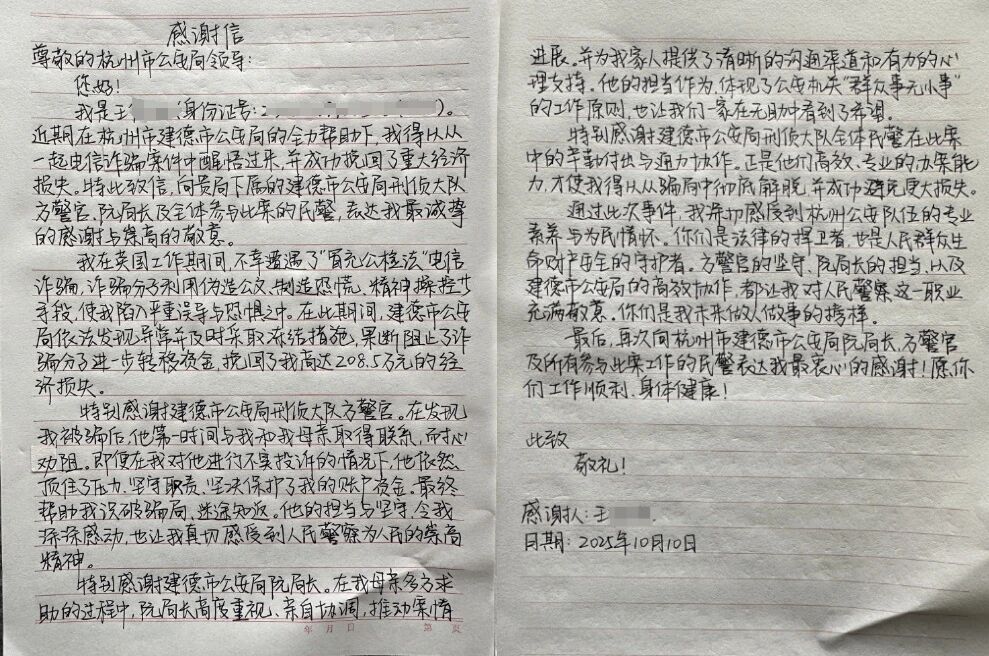 感谢信
尊敬的杭州市公安局领导：
您好！
我是王（身份证号：2）。
近期在杭州市建德市公安局的全力帮助下，我得以从
一起电信诈骗案件中醒悟过来，并成功挽回了重大经济
损失。特此致信，向贵局下属的建德市公安局刑侦大队
方警官、阮局长及全体参与此案的民警，表达我最诚挚
的感谢与崇高的敬意。
我在英国工作期间，不幸遭遇了“冒充公检法”电信
诈骗，诈骗分子利用伪造公文、制造恐慌、精神操控等
手段，使我陷入严重误导与恐惧之中。在此期间，建德市公安
局依法发现异常并及时采取冻结措施，果断阻止了诈
骗分子进一步转移资金，挽回了我高达208.5万元的经
济损失。
特别感谢建德市公安局刑侦大队方警官。在发现
我被骗后，他第一时间与我和我母亲取得联系，耐心
劝阻。即便在我对他进行不实投诉的情况下，他依然
顶住了压力、坚守职责、坚决保护了我的账户资金。最终
帮助我识破骗局、迷途知返。他的担当与坚守，令我
深深感动，也让我真切感受到人民警察为人民的崇高
精神。
特别感谢建德市公安局阮局长。在我母亲多方求
助的过程中，阮局长高度重视、亲自协调，推动案情
年 月 日 第 页
进展。并为我家人提供了清晰的沟通渠道和有力的心
理支持。他的担当作为，体现了公安机关“群众事无小事”
的工作原则，也让我们一家在无助中看到了希望。
特别感谢建德市公安局刑侦大队全体民警在此案
中的辛勤付出与通力协作。正是他们高效、专业的办案能
力，才使我得以从骗局中彻底解脱，并成功避免更大损失。
通过此次事件，我深切感受到杭州公安队伍的专业
素养与为民情怀。你们是法律的捍卫者，也是人民群众生
命财产安全的守护者。方警官的坚守、阮局长的担当、以及
建德市公安局的高效协作，都让我对人民警察这一职业
充满敬意。你们是我未来做人做事的榜样。
最后，再次向杭州市建德市公安局阮局长、方警官
及所有参与此案工作的民警表达我最衷心的感谢！愿你
们工作顺利、身体健康！
此致
敬礼！
感谢人：王
日期：2025年10月10日